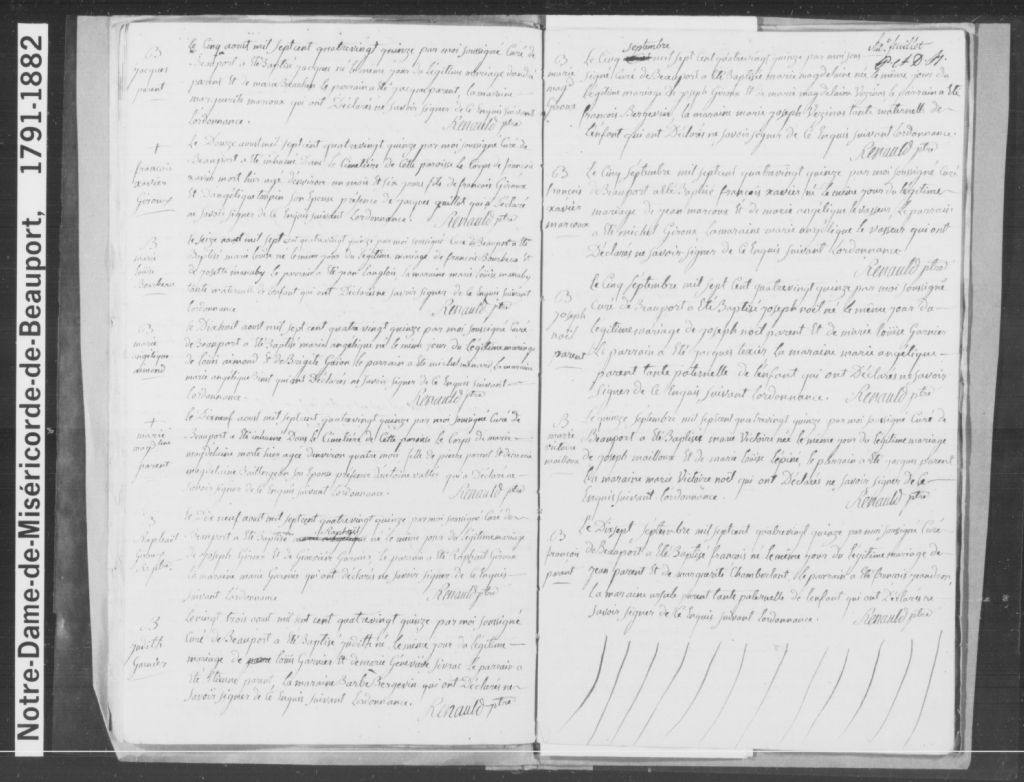 Notre-Dame-de-Miséricorde-de-Beauport, 1791-1882
B
jacques
parent
Le Cinq aoust mil sept cent quatrevingt quinze par moi soussigné Curé de
Beauport a été Baptisé jacques né le même jour du légitime mariage
parent et de marie le parrain a été jacque parent, la maraine
marguerite marcoux qui ont Déclaré ne savoir signer de ce Enquis suivant
lordonnance. Renauld ptre
+
françois
xavier
Giroux
Le Douze aoust mil sept cent quatrevingt quinze par moi soussigné Curé de
Beauport a été inhumé Dans le Cimetière de Cette paroisse le Corps de françois
xavier mort hier agé denviron un mois et six jours fils de françois Giroux
et Dangelique son Epouse presence de jacques qui a Déclaré
ne savoir signer de ce Enquis suivant Lordonnance. Renauld ptre
B
marie
louise
Le seize aoust mil sept cent quatrevingt quinze par moi soussigné Curé de Beauport a été
Baptisé marie louise né le même jour du légitime mariage de françois et
de josette le parrain a été jean langlois la maraine marie louise
tante maternelle de lenfant qui ont Déclaré ne savoir signer de ce Enquis suivant
lordonnance Renauld ptre
B
marie
angelique
Le Dixhuit aoust mil sept cent quatrevingt quinze par moi soussigné Curé
de Beauport a été Baptisé marie angelique né le même jour du légitime mariage
de louis et de Brigite le parrain a été michel la maraine
marie angelique qui ont Déclarés ne savoir signer de ce Enquis suivant
lordonnance. Renauld ptre
+
marie
magdelaine
parent
Le Dixneuf aoust mil sept cent quatrevingt quinze par moi soussigné Curé de
Beauport a été inhumé Dans le Cimetière de Cette paroisse le Corps de marie
magdelaine morte hier agée denviron quatre mois fille de pierre parent et de marie
magdelaine Baillergeon son Epouse presence qui a Déclaré ne
savoir signer de ce Enquis suivant Lordonnance. Renauld ptre
B
Raphael
Giroux
Le Dix neuf aoust mil sept cent quatrevingt quinze par moi soussigné Curé de
Beauport a été Baptisé Raphael né le même jour du légitime mariage
de joseph Giroux et de Genevieve Garnier le parrain a été Raphael Giroux
la maraine marie Garnier qui ont déclarés ne savoir signer de ce Enquis
suivant Lordonnance. Renauld ptre
B
judith
Garnier
Le vingt trois aout mil sept cent quatrevingt quinze par moi soussigné
Curé de Beauport a été Baptisé judith né le même jour du légitime
mariage de louis Garnier et de marie Geneviève le parrain a
été Etienne parent, la maraine Barbe Bergevin qui ont Déclarés ne
savoir signer de ce Enquis suivant Lordonnance. Renauld ptre
feuillet
B
marie
magd
Giroux
septembre
Le Cinq mil sept cent quatrevingt quinze par moi sous
signé Curé de Beauport a été Baptisé marie magdelaine né le même jour du
légitime mariage de joseph Giroux et de marie magdelaine Vezina le parrain a été
françois Bergevin, la maraine marie joseph Vezina tante maternelle de
lenfant qui ont Déclarés ne savoir signer de ce Enquis suivant lordonnance.
Renauld ptre
B
françois
xavier
marcoux
Le Cinq septembre mil sept cent quatrevingt quinze par moi soussigné Curé
de Beauport a été Baptisé françois xavier né le même jour du légitime
mariage de jean marcoux et de marie angelique le vasseur, le parrain
a été michel Giroux la maraine marie angelique le vasseur qui ont
Déclarés ne savoir signer de ce Enquis suivant lordonnance.
Renauld ptre
B
joseph
noël
parent
Le Cinq septembre mil sept cent quatrevingt quinze par moi soussigné
Curé de Beauport a été Baptisé joseph noël né le même jour du
légitime mariage de joseph noël parent et de marie louise Garnier
le parrain a été jacques la maraine marie angelique
parent tante paternelle de lenfant qui ont Déclarés ne savoir
signer de ce Enquis suivant lordonnance. Renauld ptre
B
marie
victoire
mailloux
Le quinze septembre mil sept cent quatrevingt quinze par moi soussigné Curé de
Beauport a été Baptisé marie victoire née le même jour du légitime mariage
de joseph mailloux et de marie louise lepine, le parrain a été jacques parent
la maraine marie Victoire noël qui ont Déclarés ne savoir signer de ce
Enquis suivant lordonnance. Renauld ptre
B
françois
parent
Le Dixsept septembre mil sept cent quatrevingt quinze par moi soussigné Curé
de Beauport a été Baptisé françois né le même jour du légitime mariage de
jean parent et de marguerite Chamberland, le parrain a été francois
la maraine ursule parent tante paternelle de lenfant qui ont Déclarés ne
savoir signer de ce Enquis suivant lordonnance. Renauld ptre